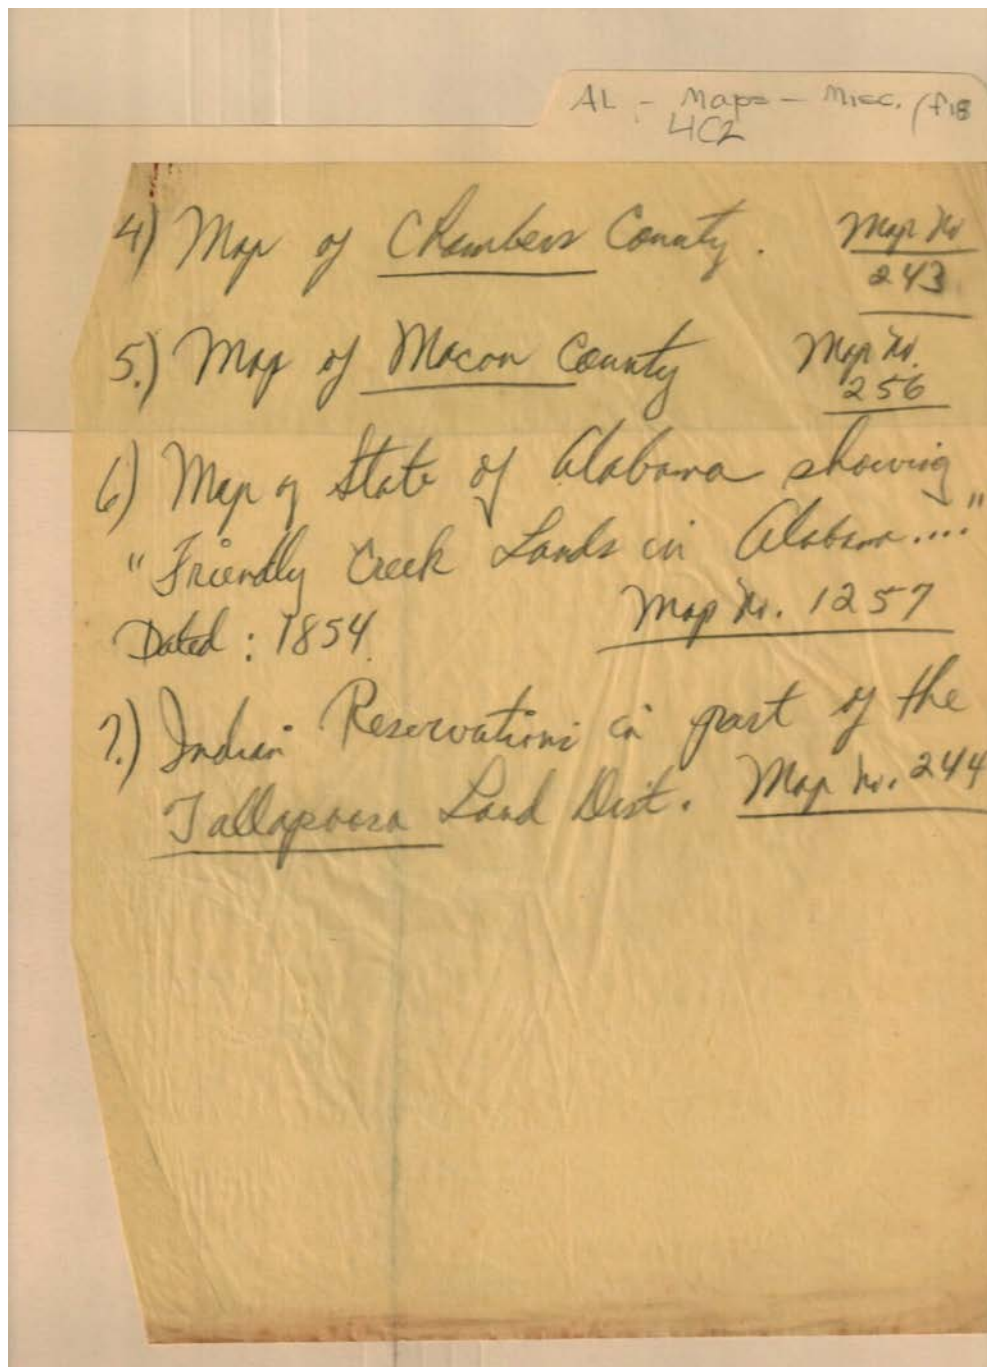 AL - Maps - Misc. (f18
4C2
4) Map of Chambers County. Map No
243
5.) Map of Macon County Map No.
256
6) Map of State of Alabama showing
"Friendly Creek Lands in Alabama...."
Dated: 1854 Map No. 1257
7.) Indian Reservations in part of the
Tallapoosa Land Dist. Map No. 244